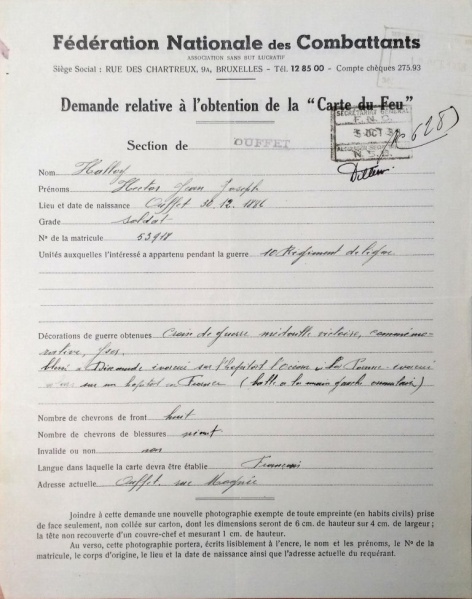 Fédération Nationale des Combattants
ASSOCIATION SANS BUT LUCRATIF
Siège Social : RUE DES CHARTREUX, 9A, BRUXELLES - Tél. 12 85 00 - Compte chèques 275.93
Demande relative à l'obtention de la "Carte du Feu"
SECRÉTARIAT GÉNÉRAL
F. N. C.
OCT
Section de OUFFET
Nom
Prénoms Jean Joseph
Lieu et date de naissance Ouffet 12.
Grade soldat
N° de la matricule
Unités auxquelles l'intéressé a appartenu pendant la guerre 10 Régiment de ligne
Décorations de guerre obtenues Croix de guerre médaille victoire, commémo-
rative,
sur l'hopital
sur un hopital en France ( balle a la main )
Nombre de chevrons de front huit
Nombre de chevrons de blessures
Invalide ou non non
Langue dans laquelle la carte devra être établie Français
Adresse actuelle Ouffet rue
Joindre à cette demande une nouvelle photographie exempte de toute empreinte (en habits civils) prise
de face seulement, non collée sur carton, dont les dimensions seront de 6 cm. de hauteur sur 4 cm. de largeur ;
la tête non recouverte d'un couvre-chef et mesurant 1 cm. de hauteur.
Au verso, cette photographie portera, écrits lisiblement à l'encre, le nom et les prénoms, le N° de la
matricule, le corps d'origine, le lieu et la date de naissance ainsi que l'adresse actuelle du requérant.